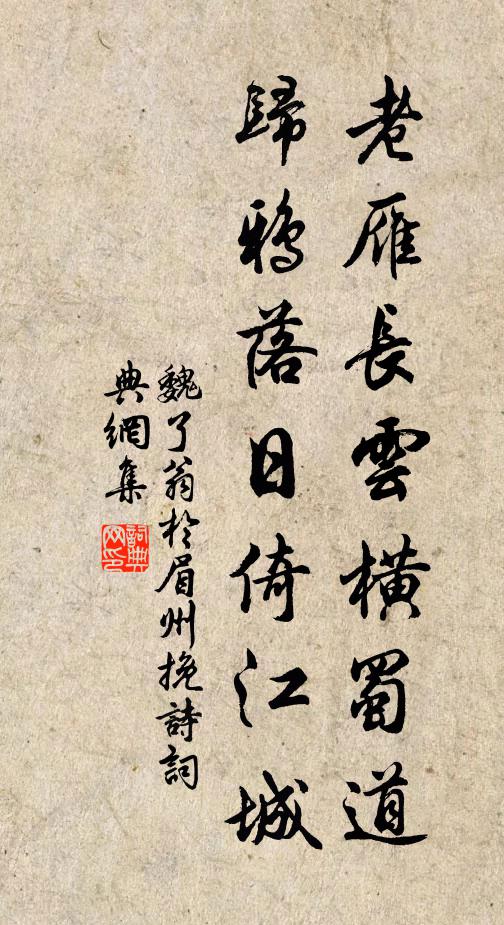 老雁長雲橫蜀道
歸鴉落日倚江城
魏了翁於眉州挽詩詞
典網集
詞典網印